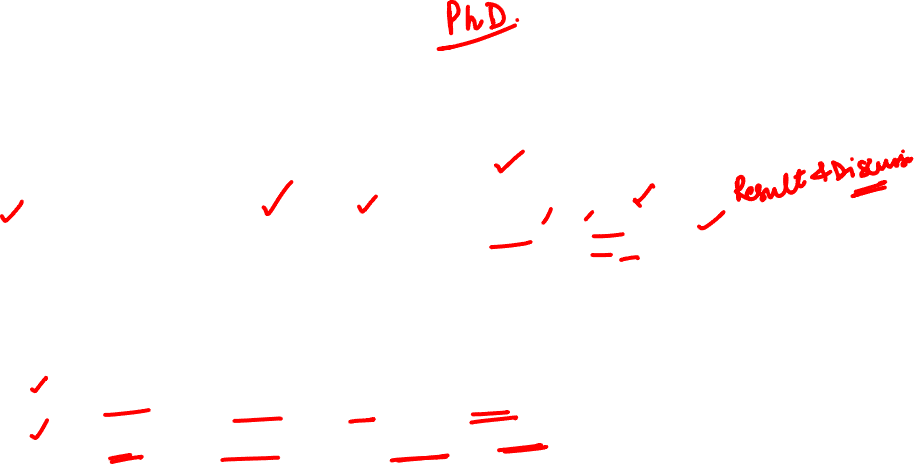 PhD.
Result & Discuss